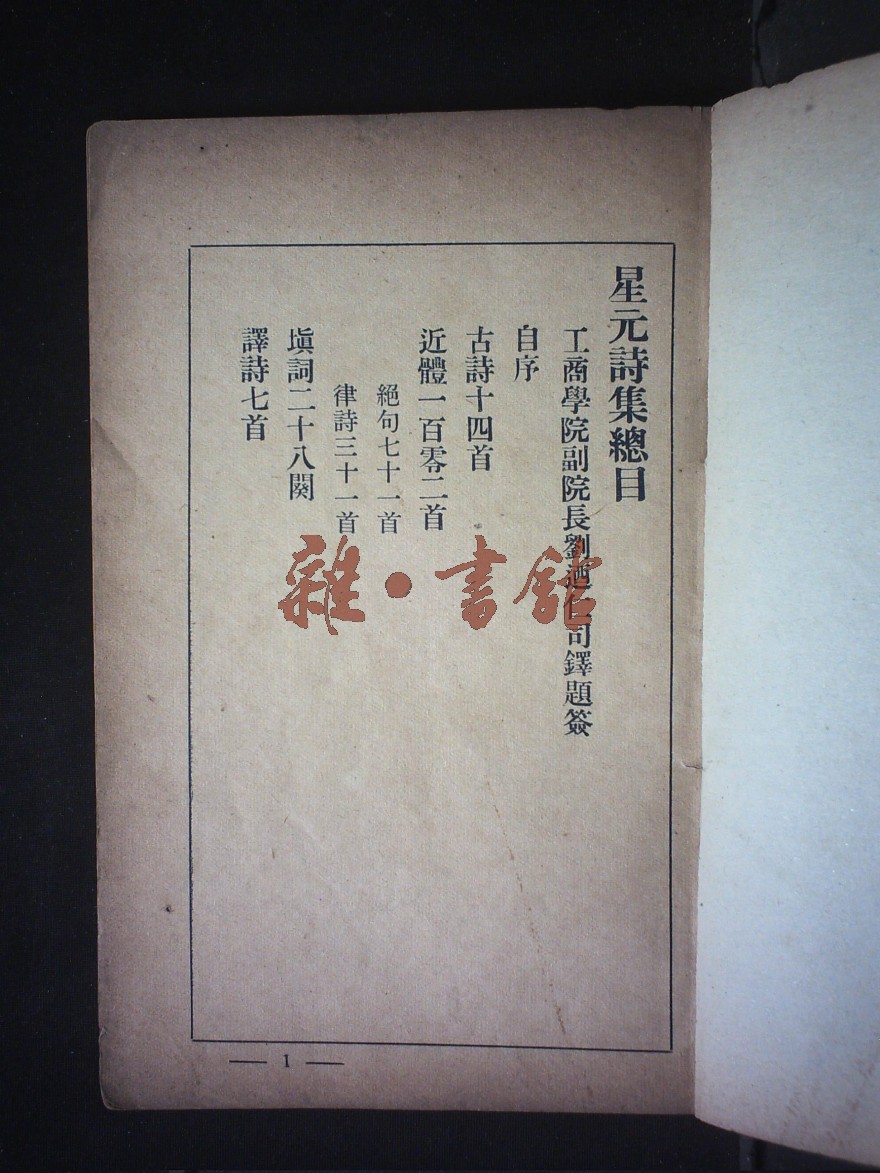 星元詩集總目
工商學院副院長劉迺仁司鐸題簽
自序
古詩十四首
近體一百零二首
絕句七十一首
律詩三十一首
塡詞二十八闋
譯詩七首
雜·書館
— 1 —